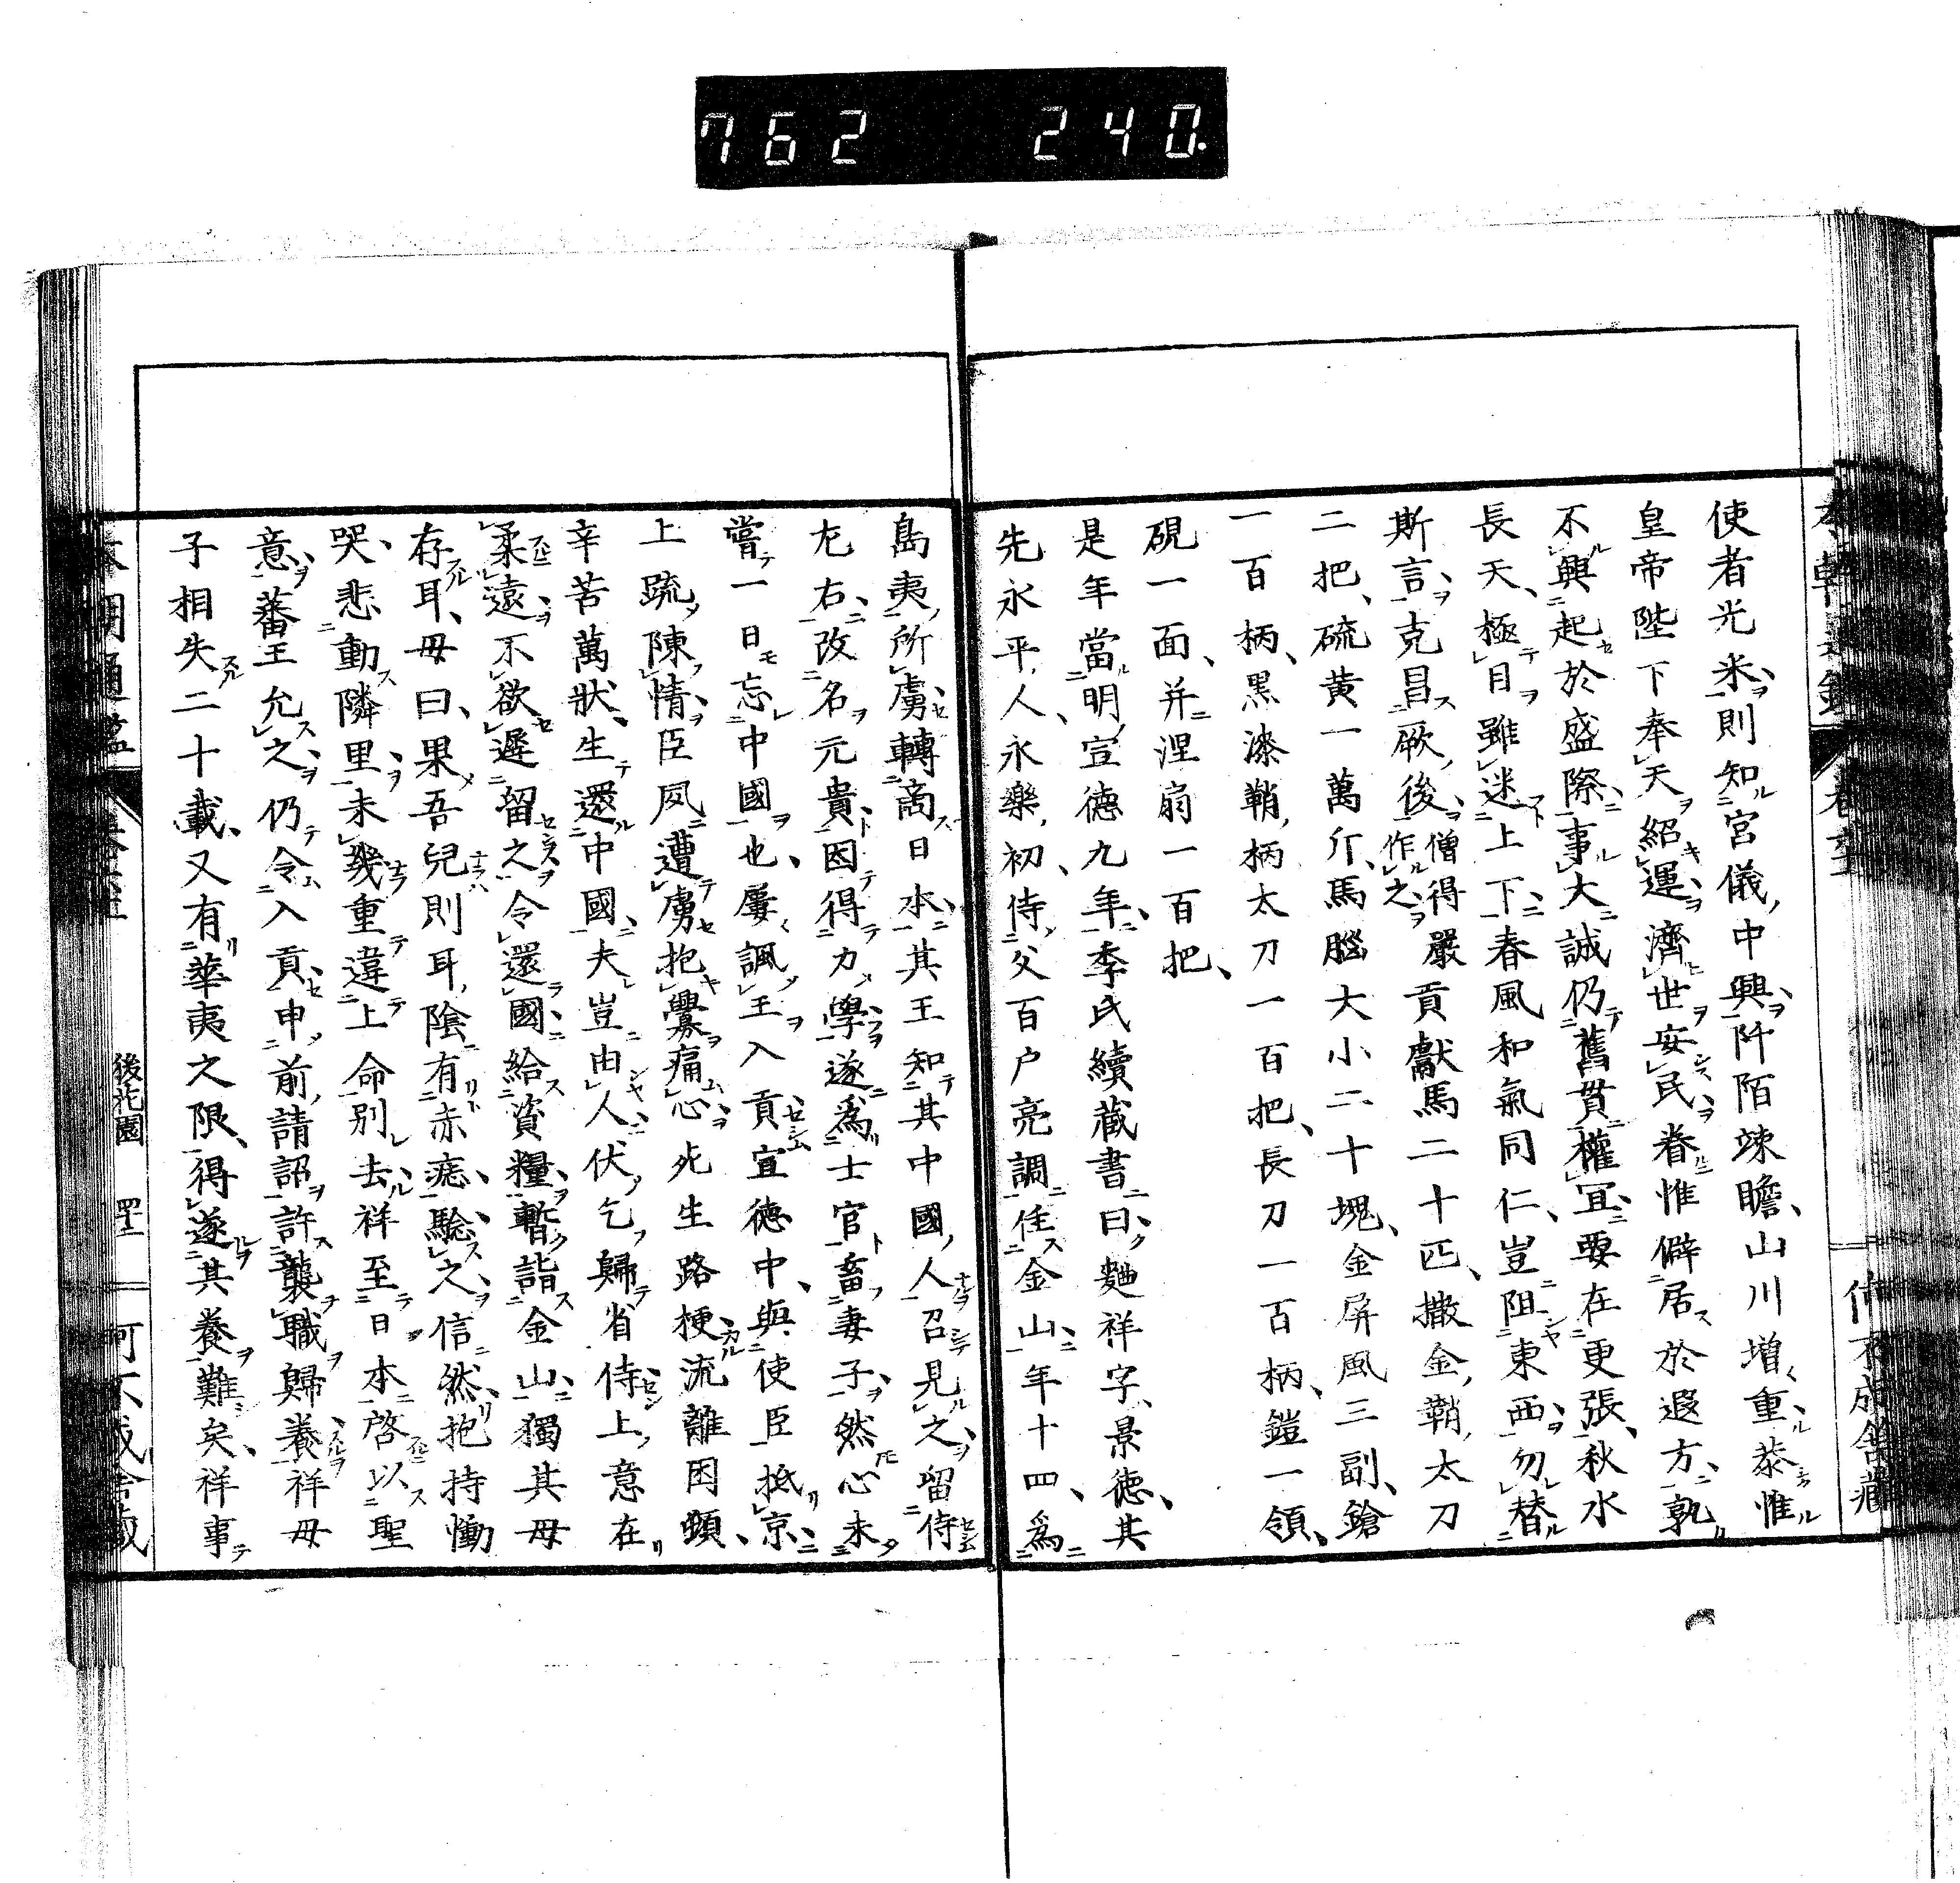 762 240.
使者光来、則知宮儀中興、阡陌竦瞻、山川増重、恭惟
皇帝陛下奉天紹運、濟世安民、眷惟僻居於遐方、孰
不興起於盛際、事大誠仍舊貫、權宜要在更張、秋水
長天、極目雖迷上下、春風和氣同仁、豈阻東西、勿替
斯言、克昌厥後、僧得嚴作之貢獻馬二十匹、撒金鞘太刀
二把、硫黄一萬斤、馬腦大小二十塊、金屏風三副、鎗
一百柄、黒漆鞘柄太刀一百把、長刀一百柄、鎧一領、
硯一面、并涅扇一百把、
是年當明宣德九年、季氏續藏書曰、麹祥字景德、其
先永平人、永樂初、侍父百户亮調任金山、年十四、爲
島夷所虜、轉鬻日本、其王知其中國人、召見之、留侍
左右、改名元貴、因得力學、遂爲士官、畜妻子、然心未
嘗一日忘中國也、屢諷王入貢、宣德中、與使臣抵京、
上疏陳情、臣夙遭虜抱釁痛心、死生路梗、流離困頓、
辛苦萬狀、生還中國、夫豈由人、伏乞歸省侍、上意在
柔遠、不欲遲留之、令還國、給資糧、暫詣金山、獨其母
存耳、母曰、果吾兒則耳陰有赤痣、驗之信然、抱持慟
哭、悲動隣里、未幾重違上命別去、祥至日本、啓以聖
意、蕃王允之、仍令入貢、申前請、詔許襲職歸養、祥母
子相失二十載、又有華夷之限、得遂其養難矣、祥事
後花園 四十二